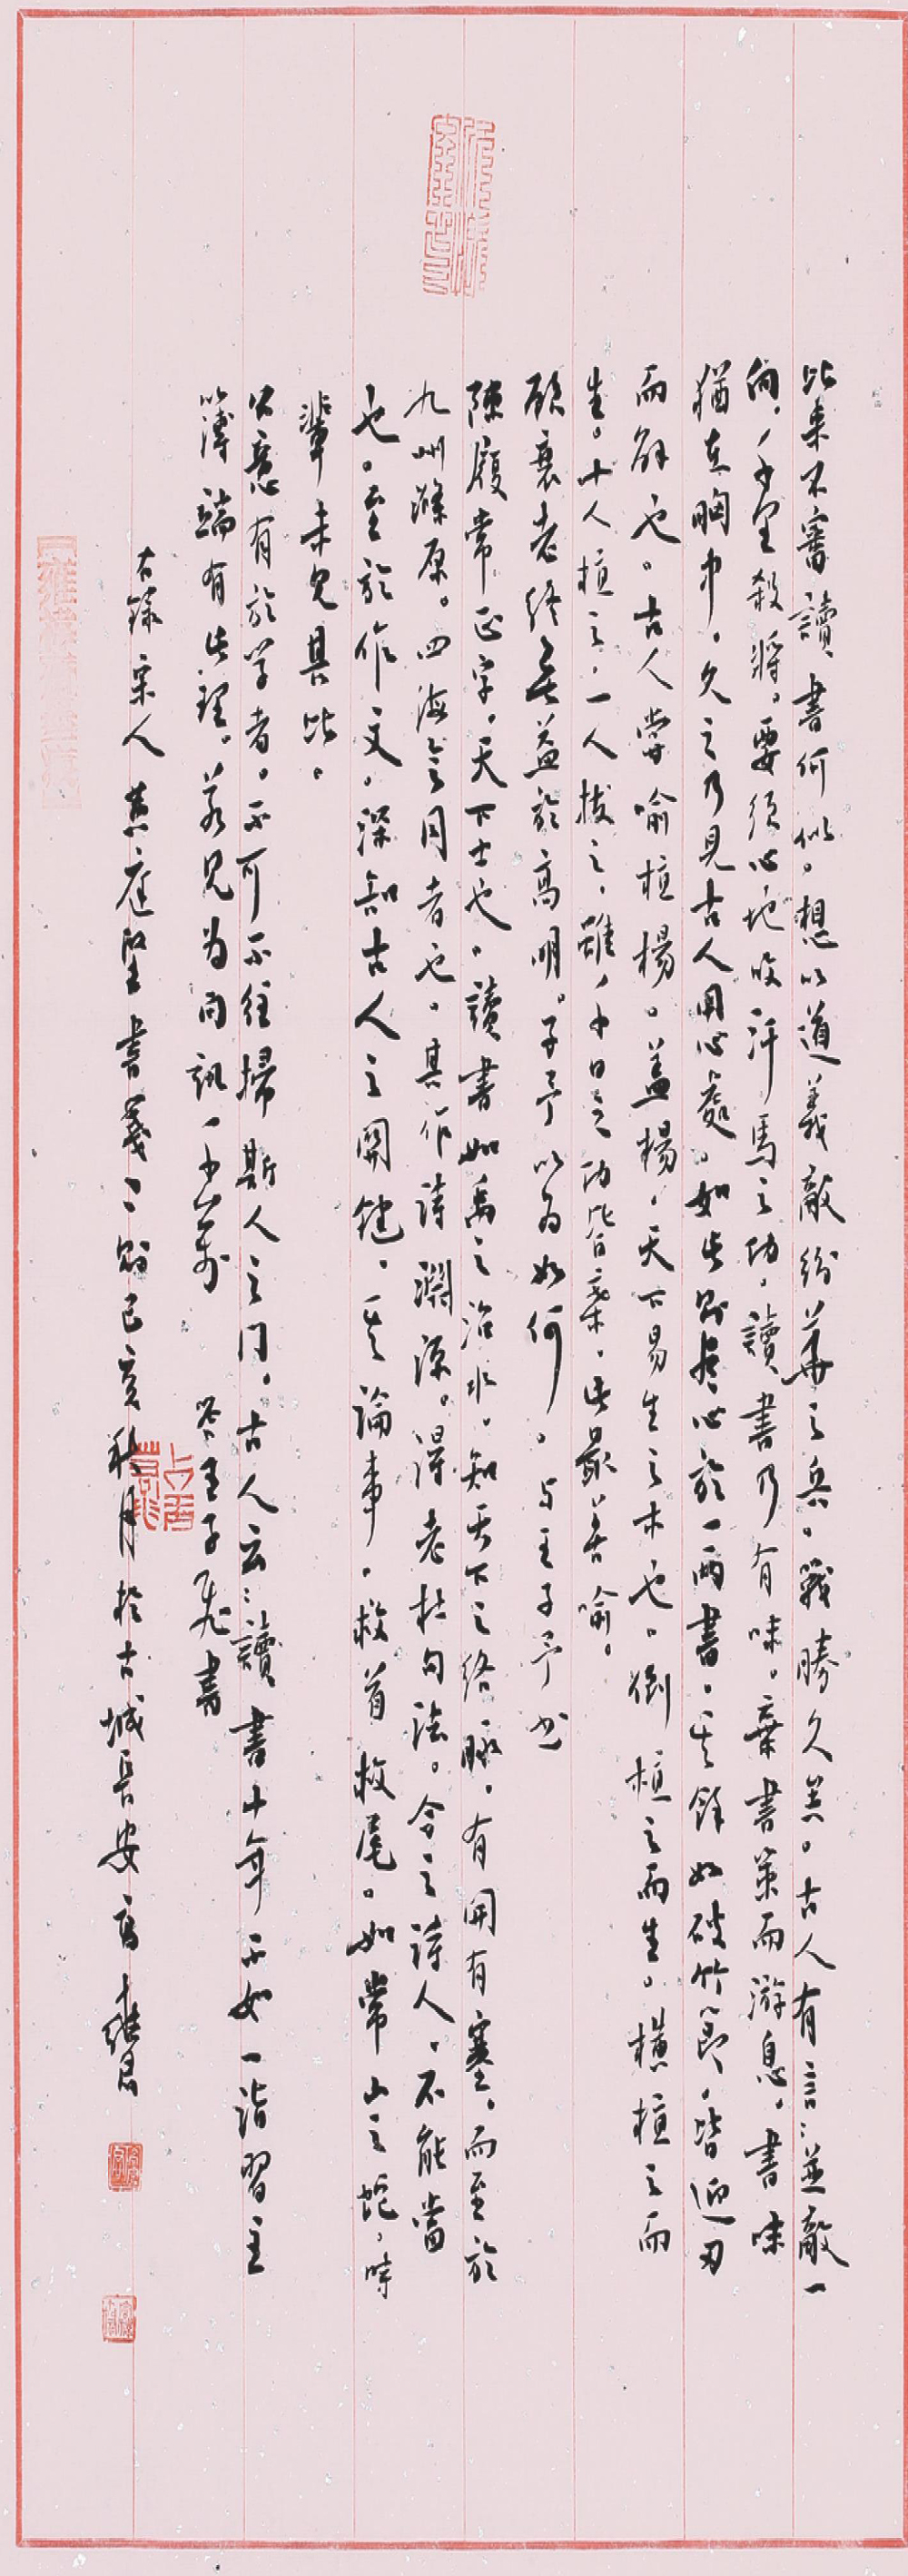 比来不審讀書何似。想以道義敵紛華之兵。戰勝久矣。古人有言：並敵一
向，千里殺將。要須心地收汗馬之功，讀書乃有味。棄書策而游息，書味
猶在胸中，久之乃見古人用心處。如此則盡心於一兩書，其餘如破竹節，皆迎刃
而解也。古人嘗喻植楊。蓋楊，天下易生之木也。倒植之而生。横植之而
生。十人植之，一人拔之，雖千日之功皆棄，此最善喻。
顧衰老終無益於高明。子予以為如何。与王子予书
陳履常正字，天下士也。讀書如禹之治水，知天下之絡脈，有開有塞，而至於
九州滌原。四海會同者也。其作詩淵源。得老杜句法。今之詩人，不能當
也。至於作文，深知古人之關鍵，其論事，救首救尾。如常山之蛇，時
輩未見其比。
公意有於学者，不可不往掃斯人之门。古人云：讀書十年不如一詣習主
簿端有此理，若見为问訊千萬 答王子飛書
右録宋人黄庭堅書箋二則己亥秋月於古城長安高雍君